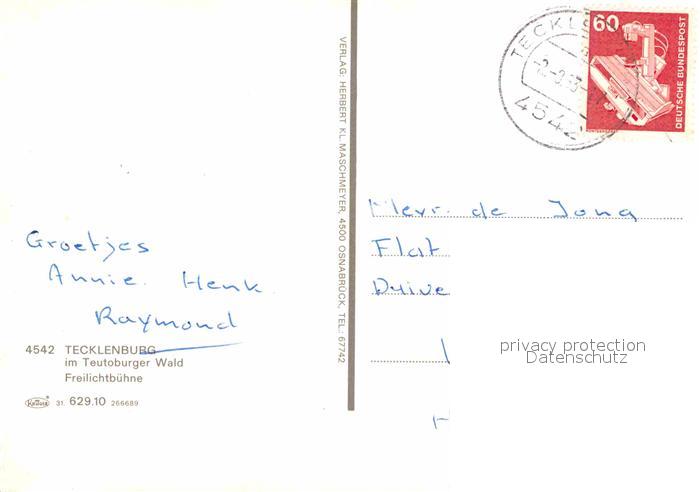 Groetjes
Annie. Henk
Raymond
4542 TECKLENBURG
im Teutoburger Wald
Freilichtbühne
31. 629.10 266689
VERLAG: HERBERT KL. MASCHMEYER, 4500 OSNABRÜCK, TEL.: 67742
TECKL
4542
60
DEUTSCHE BUNDESPOST
Mevr. de Jong
Flat
Duive
privacy protection
Datenschutz